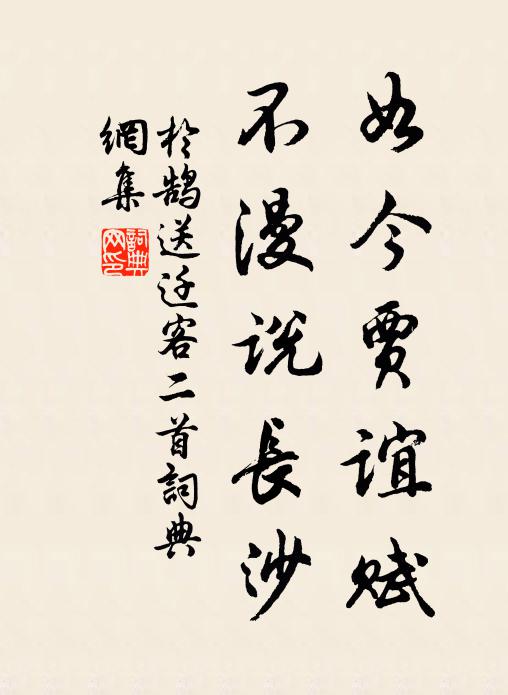 如今賈誼賦
不漫說長沙
於鵠送迁客二首詞典
網集
詞典網印